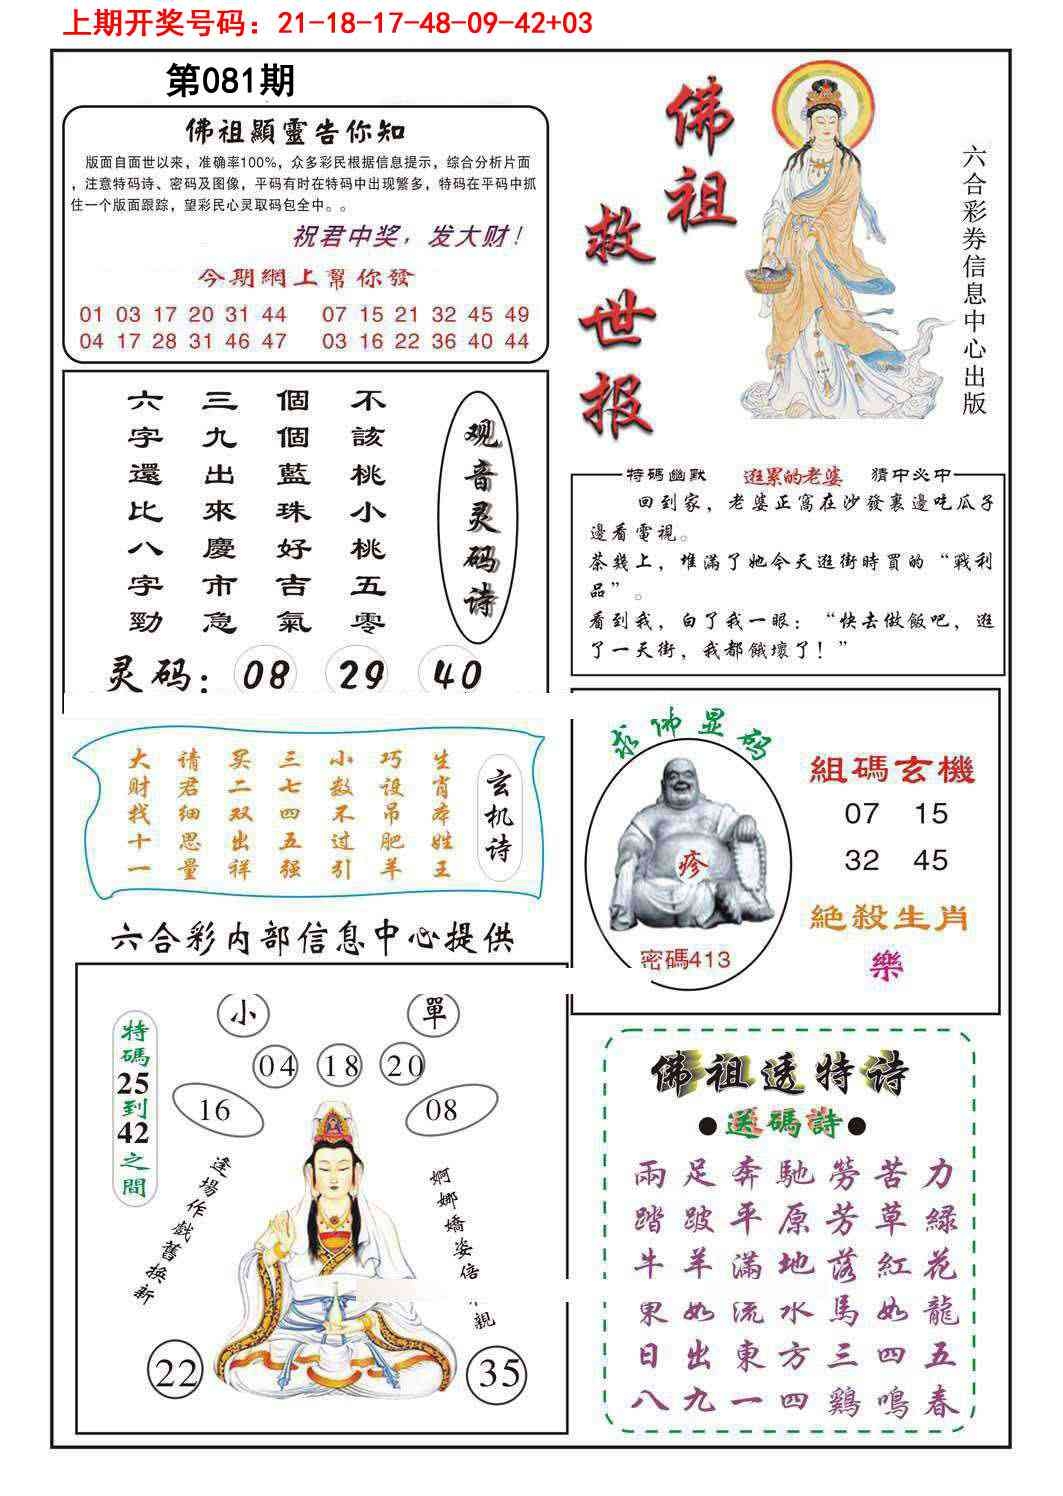 上期开奖号码：21-18-17-48-09-42+03
第081期
佛祖顯靈告你知
版面自面世以来，准确率100%，众多彩民根据信息提示，综合分析片面
，注意特码诗、密码及图像，平码有时在特码中出现繁多，特码在平码中抓
住一个版面跟踪，望彩民心灵取码包全中。。
祝君中奖，发大财！
今期網上幫你發
01 03 17 20 31 44 07 15 21 32 45 49
04 17 28 31 46 47 03 16 22 36 40 44
佛祖
救世报
六合彩券信息中心出版
观音灵码诗
不該桃小桃五零
個個藍珠好吉氣
三九出來慶市急
六字還比八字勁
灵码：08 29 40
特碼幽默 逛累的老婆 猜中必中
回到家，老婆正窩在沙發裏邊吃瓜子
邊看電視。
茶幾上，堆滿了她今天逛街時買的“戰利
品”。
看到我，白了我一眼：“快去做飯吧，逛
了一天街，我都餓壞了！”
玄机诗
生肖本姓王
巧设吊肥羊
小数不过引
三七四五强
买二双出祥
请君细思量
大财找十一
求佛显码
疹
密碼413
組碼玄機
07 15
32 45
絶殺生肖
樂
六合彩内部信息中心提供
特碼25到42之間
小 單
04 18 20
16 08
逢場作戲舊换新
婀娜嬌姿倍
親
22 35
佛祖透特诗
●送碼詩●
兩足奔馳勞苦力
踏跛平原芳草緑
牛羊滿地落紅花
果如流水馬如龍
日出東方三四五
八九一四鷄鳴春